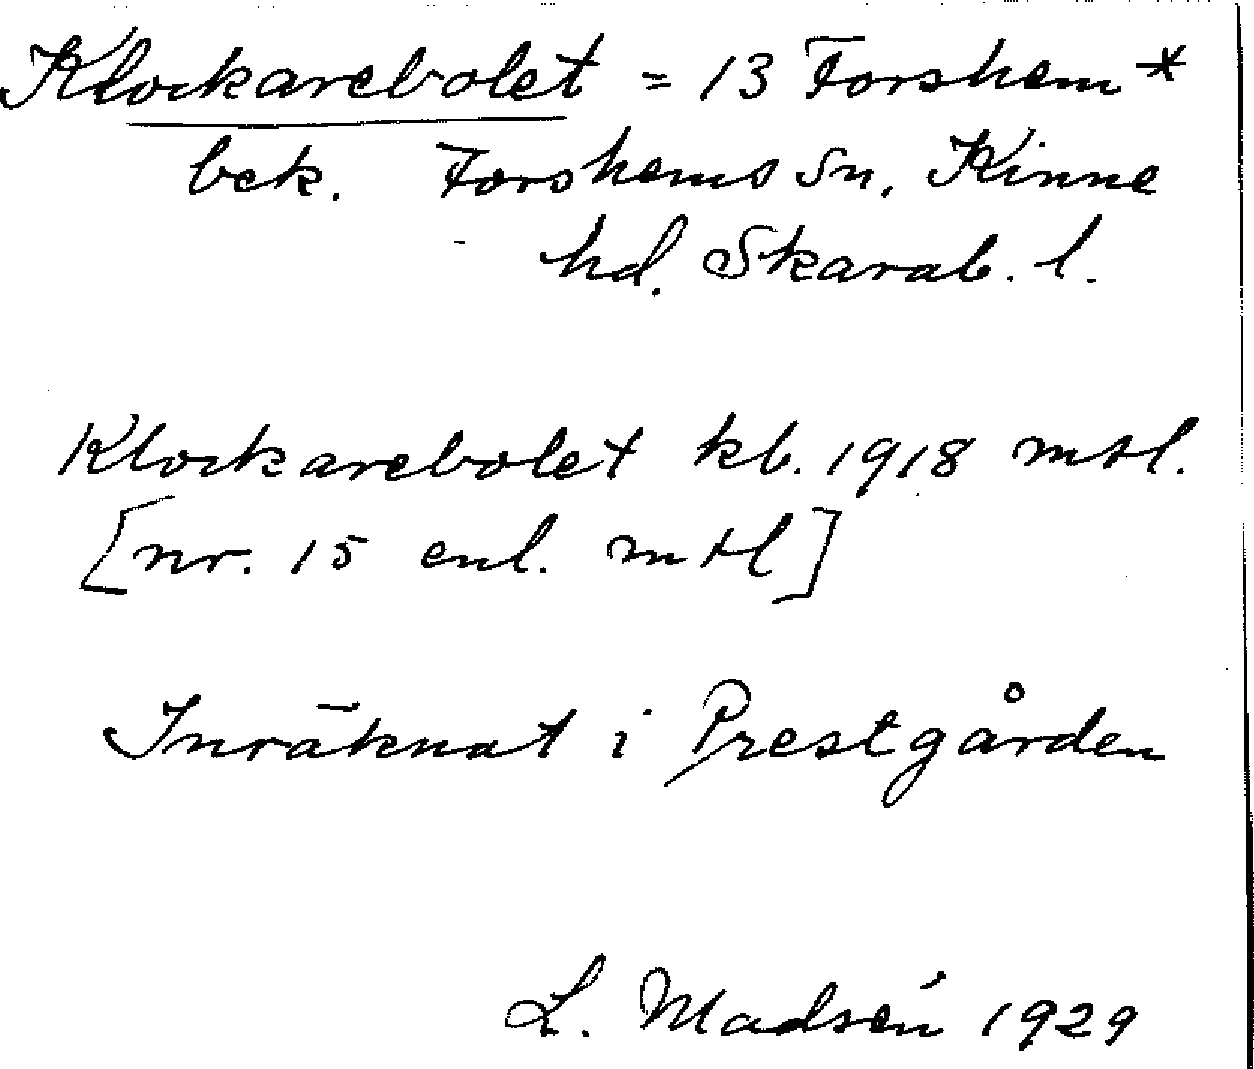 Klockarebolet = 13 Forshem *
bek. Forshems sn, Kinne
hd. Skarab. l.
Klockarebolet kb. 1918 mtl.
[nr. 15 enl. mtl]
Inräknat i Prestgården
L. Madsén 1929